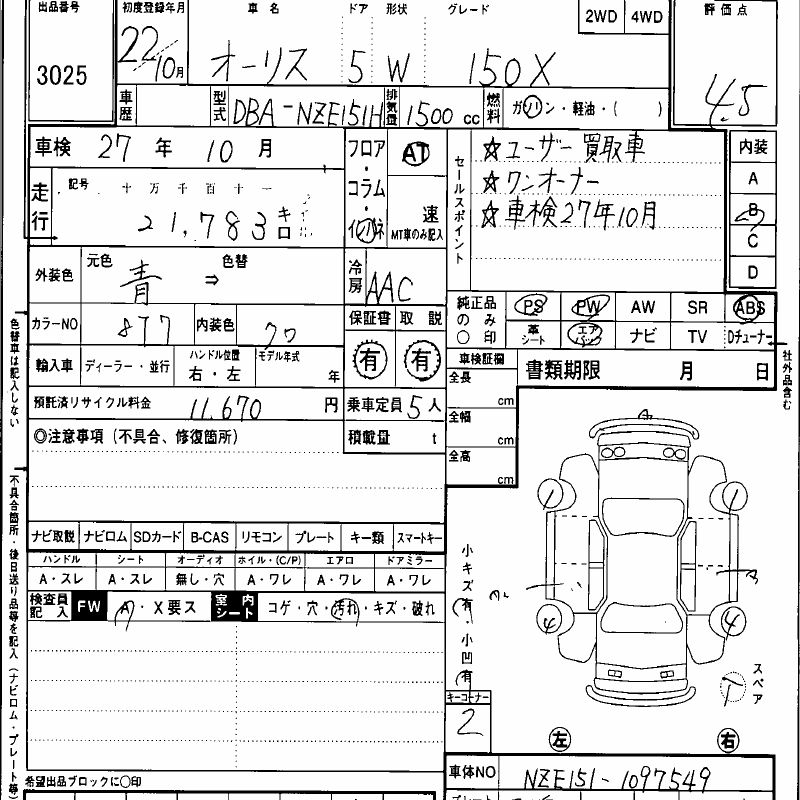 出品番号 初度登録年月 車名 ドア 形状 グレード 2WD 4WD 評価点
3025 22/10月 オーリス 5 W 150X 4.5
車歴 型式 DBA-NZE151H 排気量 1500 cc 燃料 ガソリン・軽油・( )
車検 27 年 10 月 フロア・コラム・インパネ AT 速 MT車のみ記入
走行 記号 十 万 千 百 十 一
21,783 キロ
セールスポイント
☆ユーザー買取車
☆ワンオーナー
☆車検27年10月
内装
A
B
C
D
外装色 元色 青 ⇒ 色替 冷房 AAC
カラーNO 877 内装色 保証書 取説
有 有
純正品のみ○印 PS PW AW SR ABS
革シート エアバック ナビ TV Dチューナー
輸入車 ディーラー・並行 ハンドル位置 右・左 モデル年式 年
車検証欄 書類期限 月 日
全長 cm
全幅 cm
全高 cm
預託済リサイクル料金 11,670 円 乗車定員 5人
◎注意事項(不具合、修復箇所) 積載量 t
ナビ取説 ナビロム SDカード B-CAS リモコン プレート キー類 スマートキー
ハンドル シート オーディオ ホイル・(C/P) エアロ ドアミラー
A・スレ A・スレ 無し・穴 A・ワレ A・ワレ A・ワレ
検査員記入 FW A・X要ス 室内シート コゲ・穴・汚れ・キズ・破れ
小キズ有、小凹有
A
4 4
スペア
キーコーナー
2
左 右
車体NO NZE151-1097549
希望出品ブロックに○印
色替車は記入しない
不具合箇所・後日送り品等を記入(ナビロム・プレート等)
社外品含む